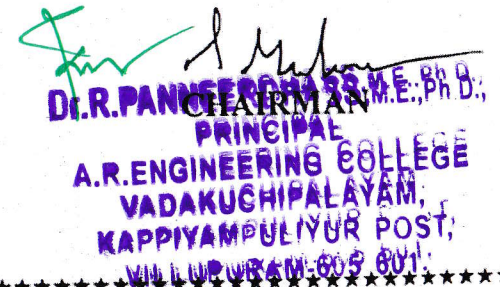 CHAIRMAN
Dr.R.PANNEERDHASS.M.E.,Ph D.,
PRINCIPAL
A.R.ENGINEERING COLLEGE
VADAKUCHIPALAYAM,
KAPPIYAMPULIYUR POST,
VILLUPURAM-605 601.